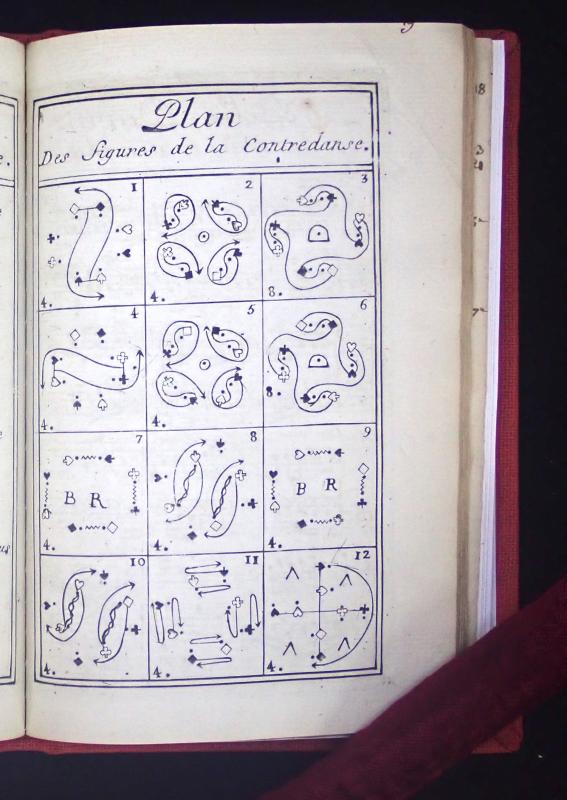 Plan
Des figures de la Contredanse.
1 2 3
4. 4. 8.
4 5 6
4. 4. 8.
7 8 9
B R B R
4. 4. 4.
10 11 12
4. 4. 4.